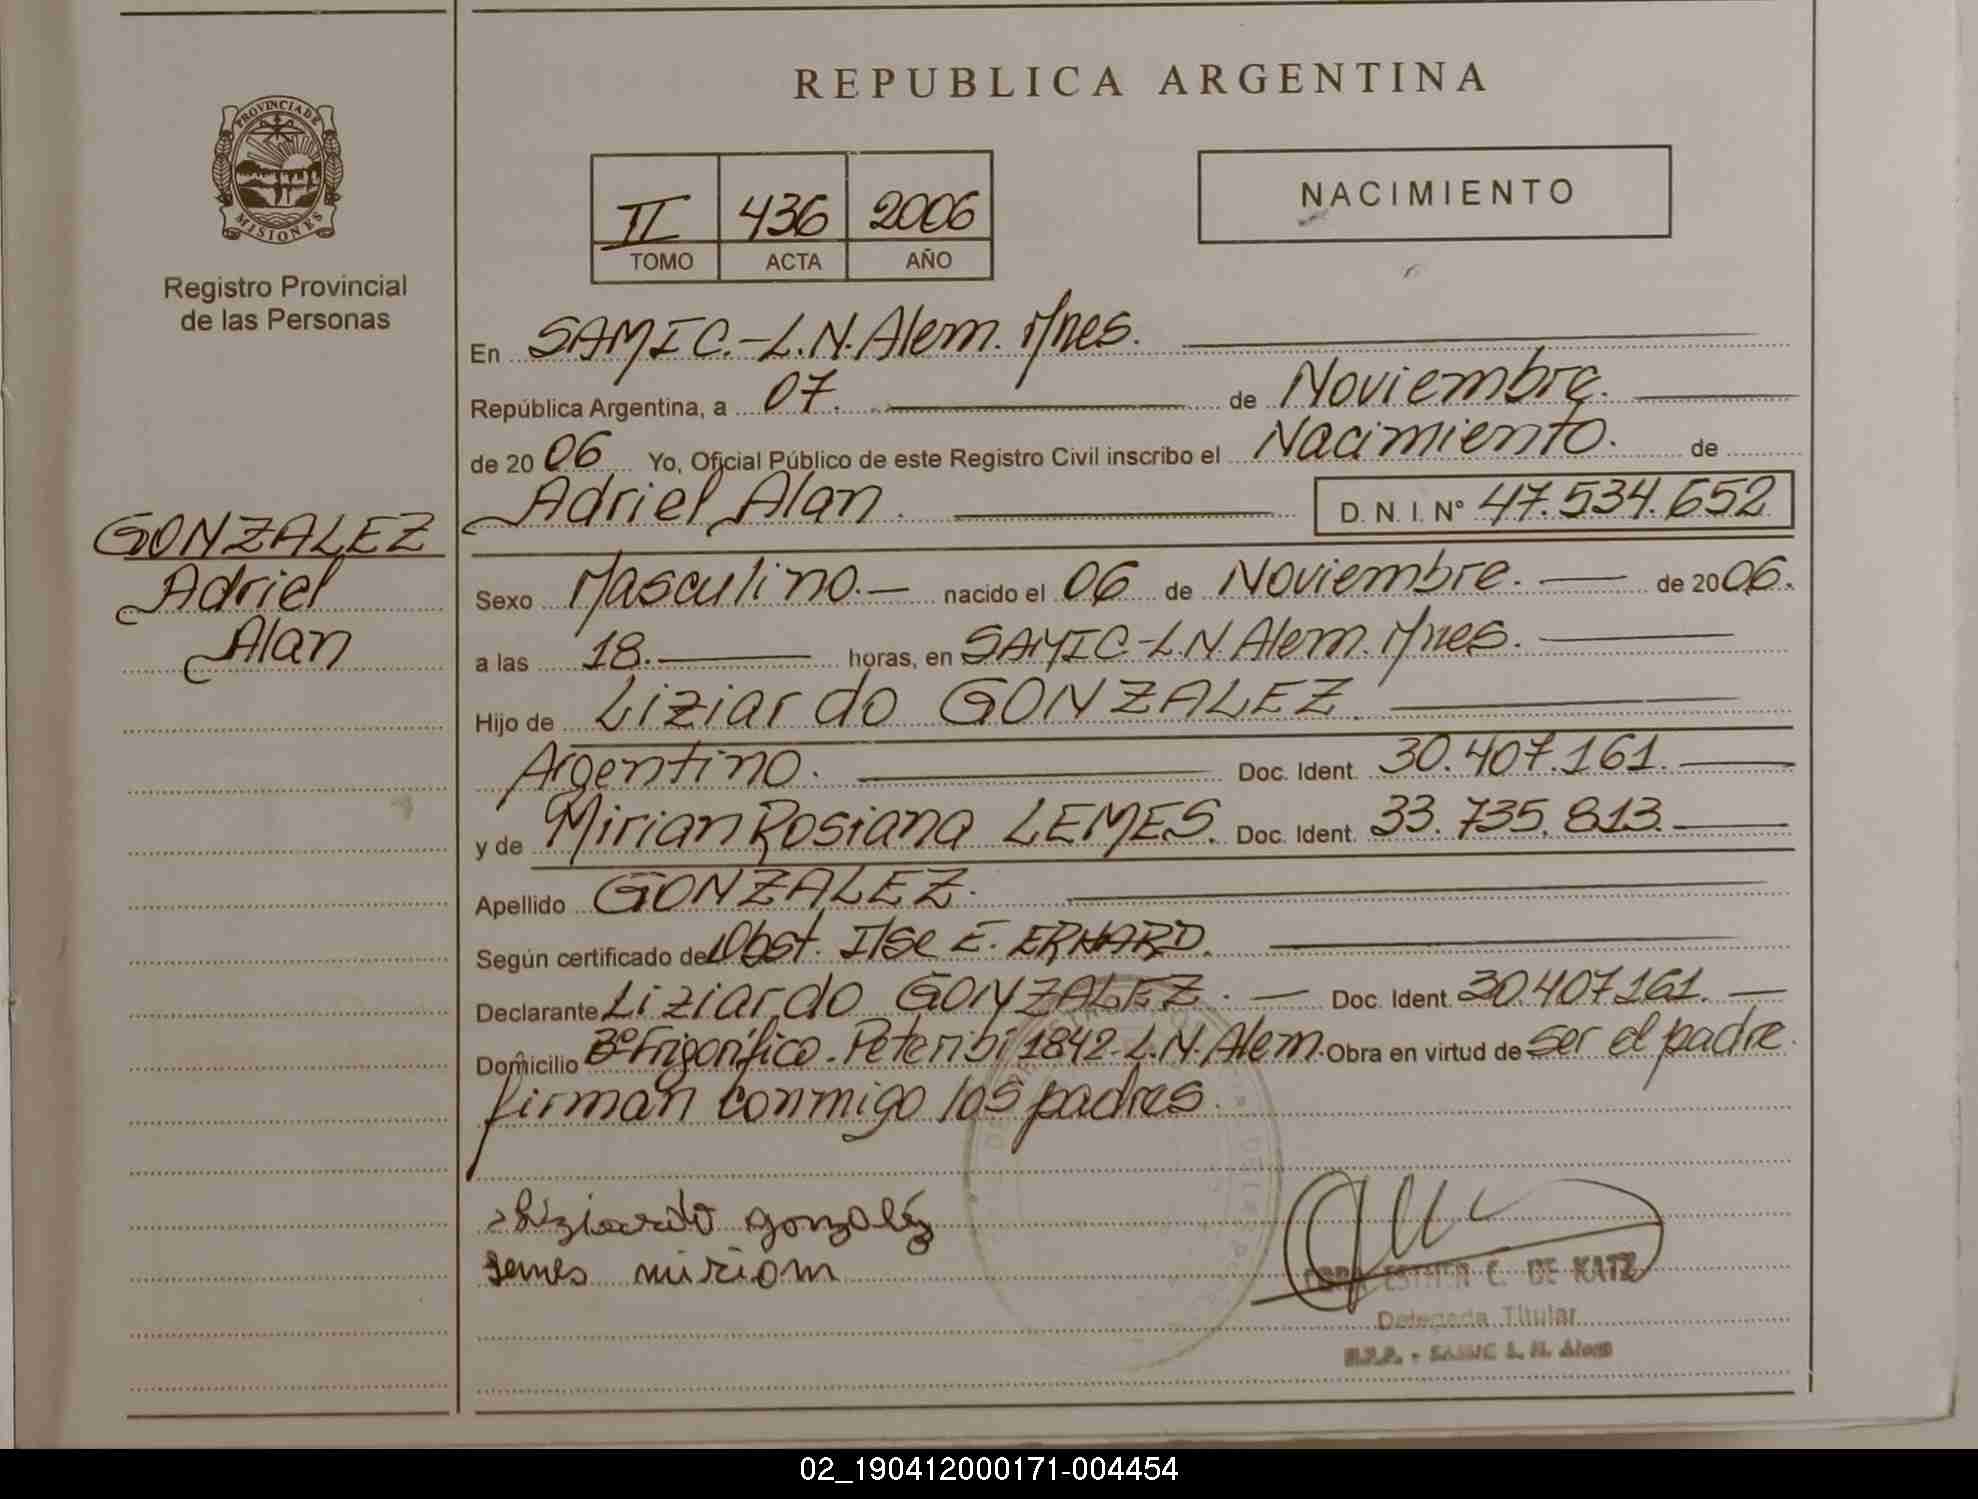 REPUBLICA ARGENTINA
PROVINCIA DE
MISIONES
Registro Provincial
de las Personas
II 436 2006
TOMO ACTA AÑO
NACIMIENTO
En SAMIC.-L.N.Alem. Mnes.
República Argentina, a 07. de Noviembre.
de 2006 Yo, Oficial Público de este Registro Civil inscribo el Nacimiento. de
Adriel Alan. D. N. I. Nº 47.534.652
GONZALEZ
Adriel
Alan
Sexo Masculino.- nacido el 06 de Noviembre. de 2006.
a las 18. horas, en SAMIC-L.N Alem. Mnes.
Hijo de Liziardo GONZALEZ.
Argentino. Doc. Ident. 30.407.161.
y de Mirian Rosiana LEMES. Doc. Ident. 33.735.813.
Apellido GONZALEZ.
Según certificado de Obst. Ilse E. ERHARD.
Declarante Liziardo GONZALEZ. Doc. Ident. 30.407.161.
Domicilio Bº Frigorífico. Peteribí 1842-L.N.Alem. Obra en virtud de ser el padre.
firman conmigo los padres.
Liziardo gonzalez
Lemes miriam
ESTHER C. DE KATZ
Delegada Titular
R.P.P. - SAMIC L. N. Alem
02_190412000171-004454